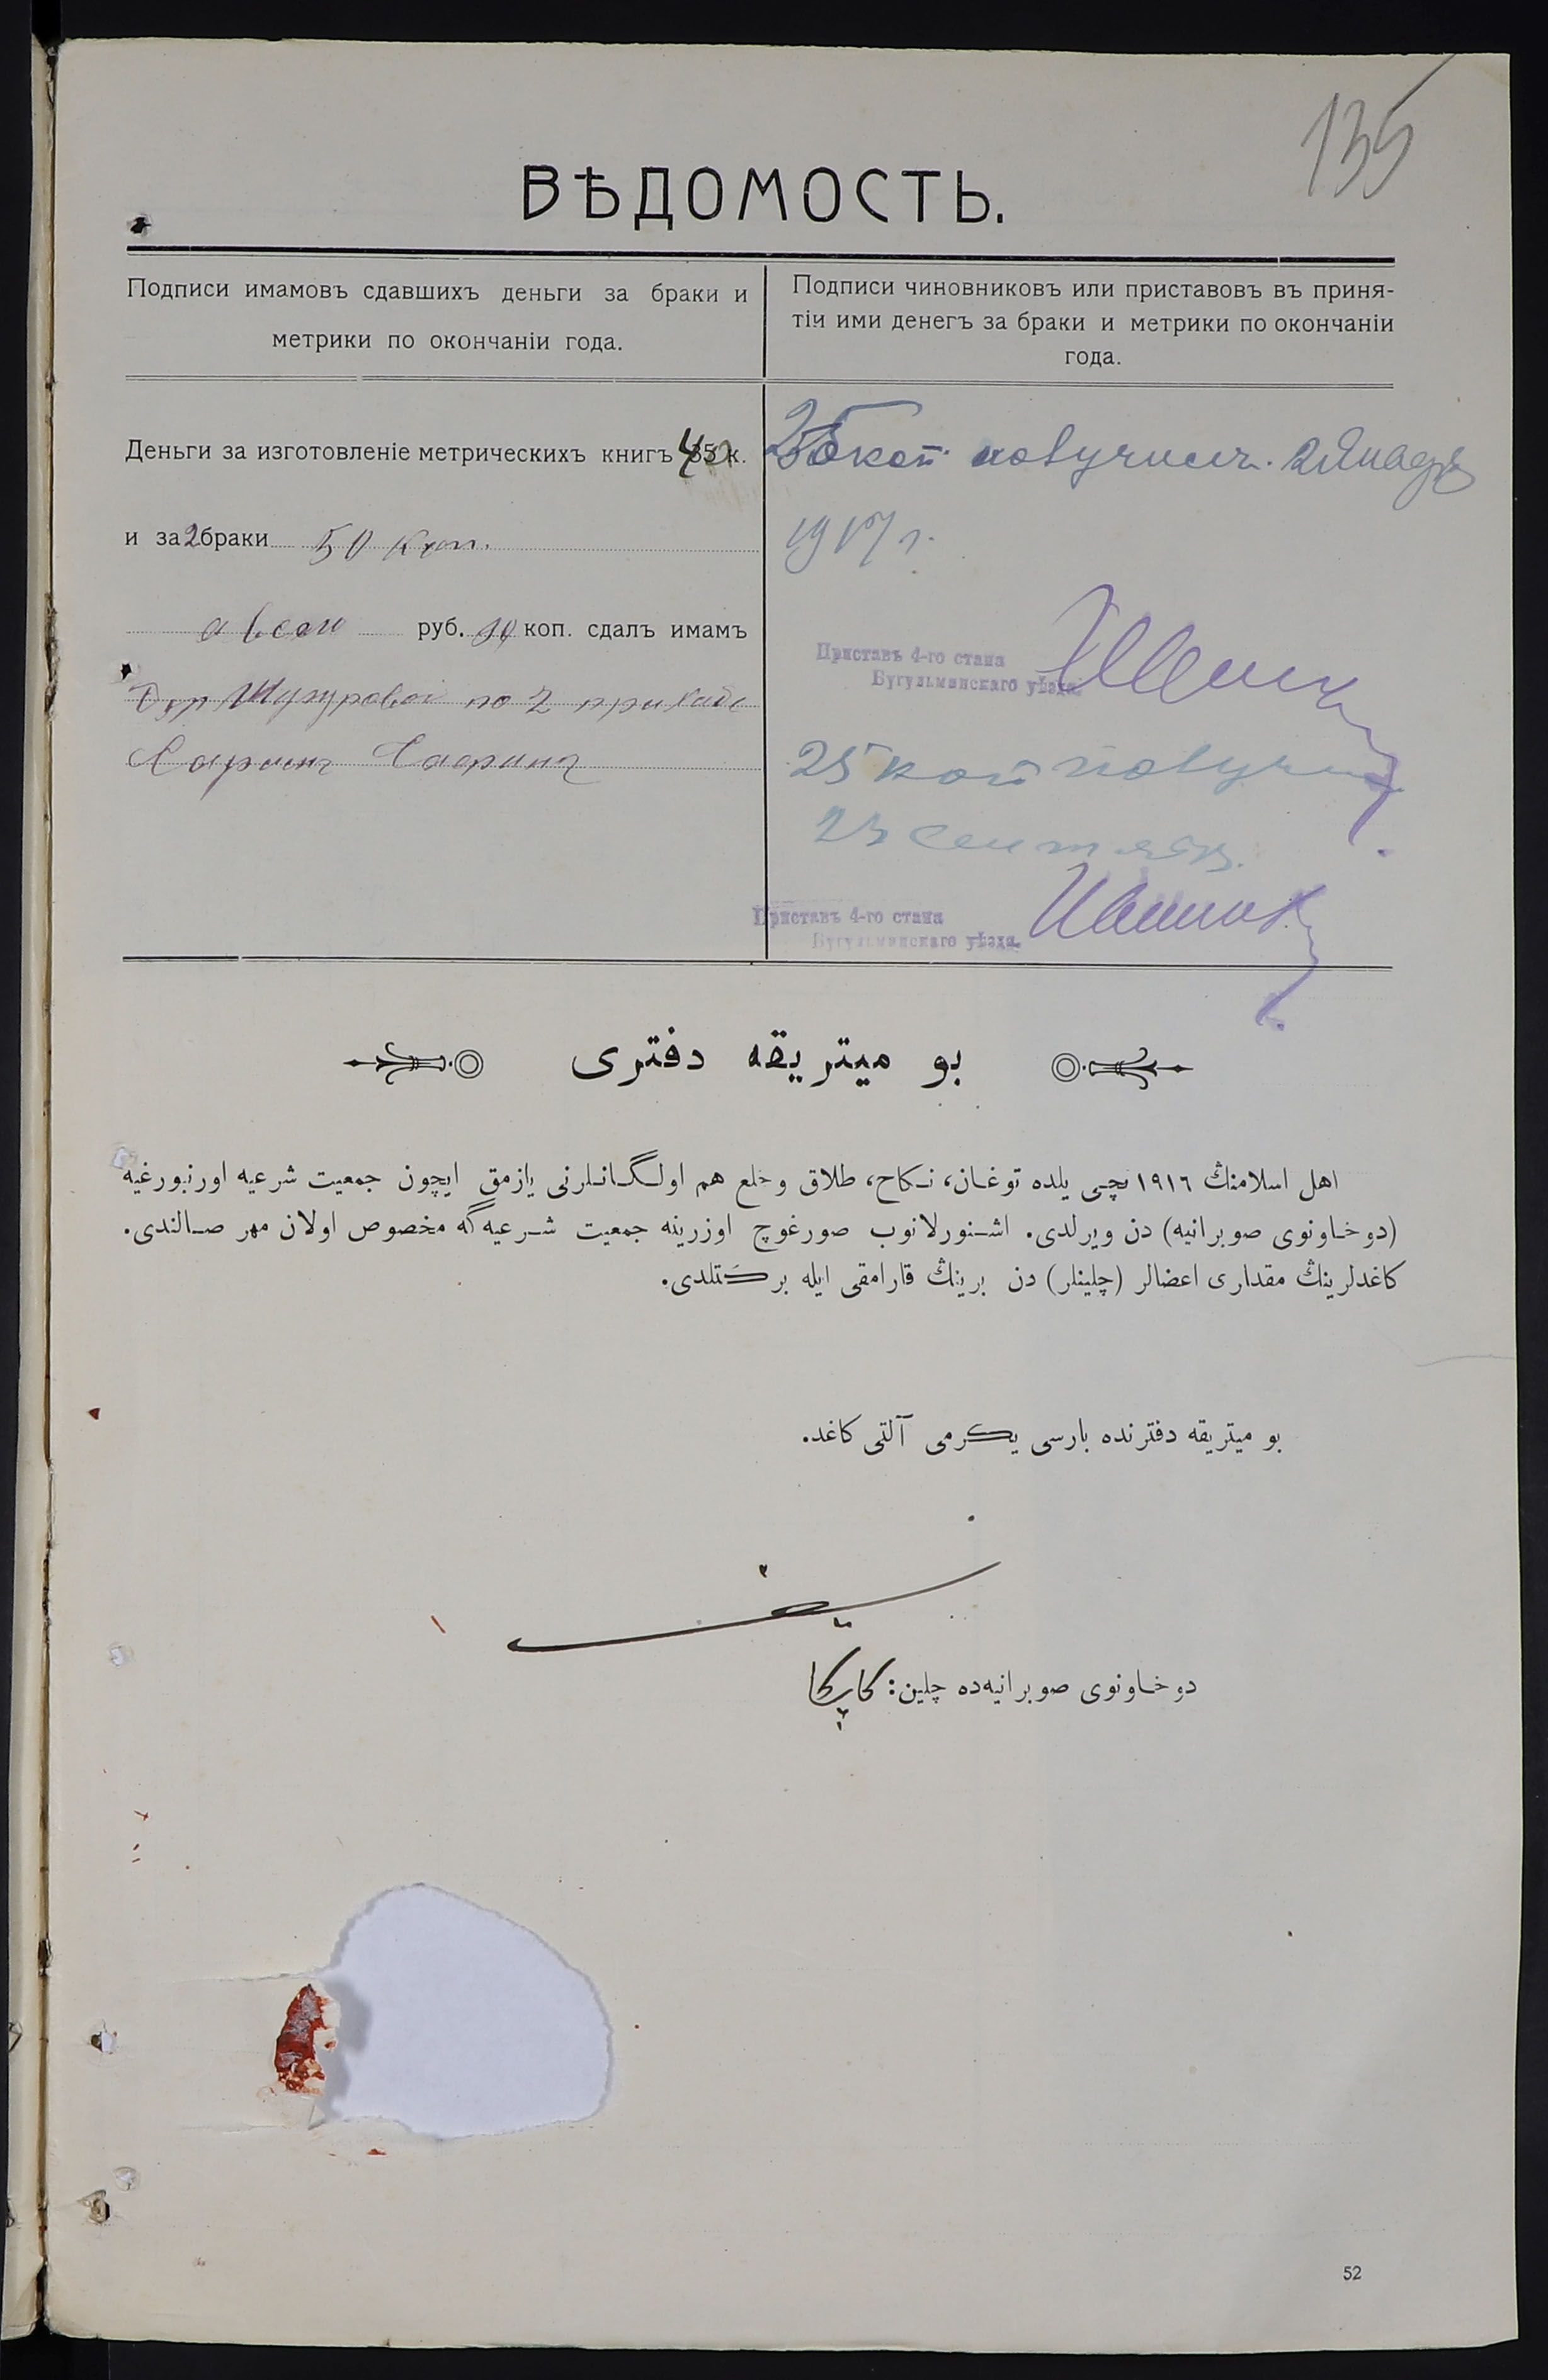 135
ВѢДОМОСТЬ.
Подписи имамовъ сдавшихъ деньги за браки и
метрики по окончаніи года.
Подписи чиновниковъ или приставовъ въ приня-
тіи ими денегъ за браки и метрики по окончаніи
года.
Деньги за изготовленіе метрическихъ книгъ к.
и за 2 браки 50 коп.
а всего руб. коп. сдалъ имамъ
по 2 приходу
25 коп получилъ. 2 Января
1917 г.
Приставъ 4-го стана
Бугульминскаго уѣзда.
25 коп получилъ
23 Сентября.
Приставъ 4-го стана
Бугульминскаго уѣзда.
بو ميتريقه دفترى
اهل اسلامنڭ ١٩١٦ نچى يلده توغان، نكاح، طلاق و خلع هم اولگانلرنى يازمق ايچون جمعيت شرعيه اورنبورغيه
(دوخاونوى صوبرانيه) دن ويرلدى. اشنورلانوب صورغوچ اوزرينه جمعيت شرعيه گه مخصوص اولان مهر صالندى.
كاغدلرينڭ مقدارى اعضالر (چلينلر) دن برينڭ قارامقى ايله بركتلدى.
بو ميتريقه دفترنده بارسى يكرمى آلتى كاغد.
دوخاونوى صوبرانيه‌ده چلين:
52